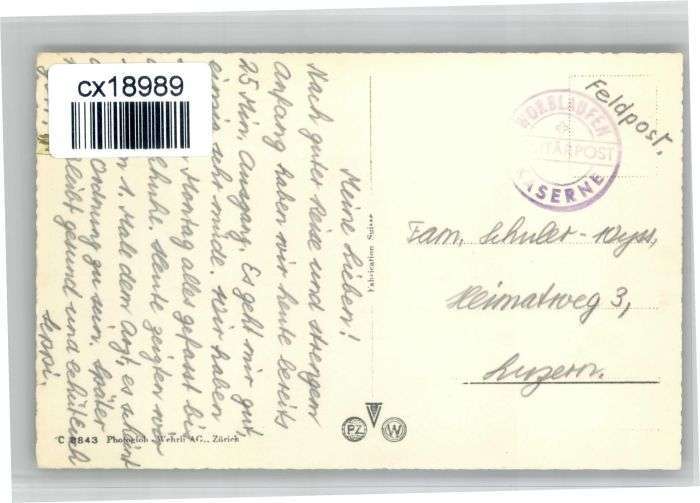 cx18989
Meine Lieben!
Nach guter Reise und strengem
Anfang haben wir heute bereits
25 Min. Ausgang. Es geht mir gut,
sehr müde. Wir haben
Montag alles gefasst bis
Heute zeigten wir
1. Male dem Arzt, es scheint
Ordnung zu sein. Später
bleibt gesund und
Seppi.
Fabrication Suisse
Feldpost.
WORBLAUFEN
MILITÄRPOST
KASERNE
Fam. Schuler-Wyss,
Heimatweg 3,
Luzern.
C 8843 Photoglob-Wehrli AG., Zürich
PZ W